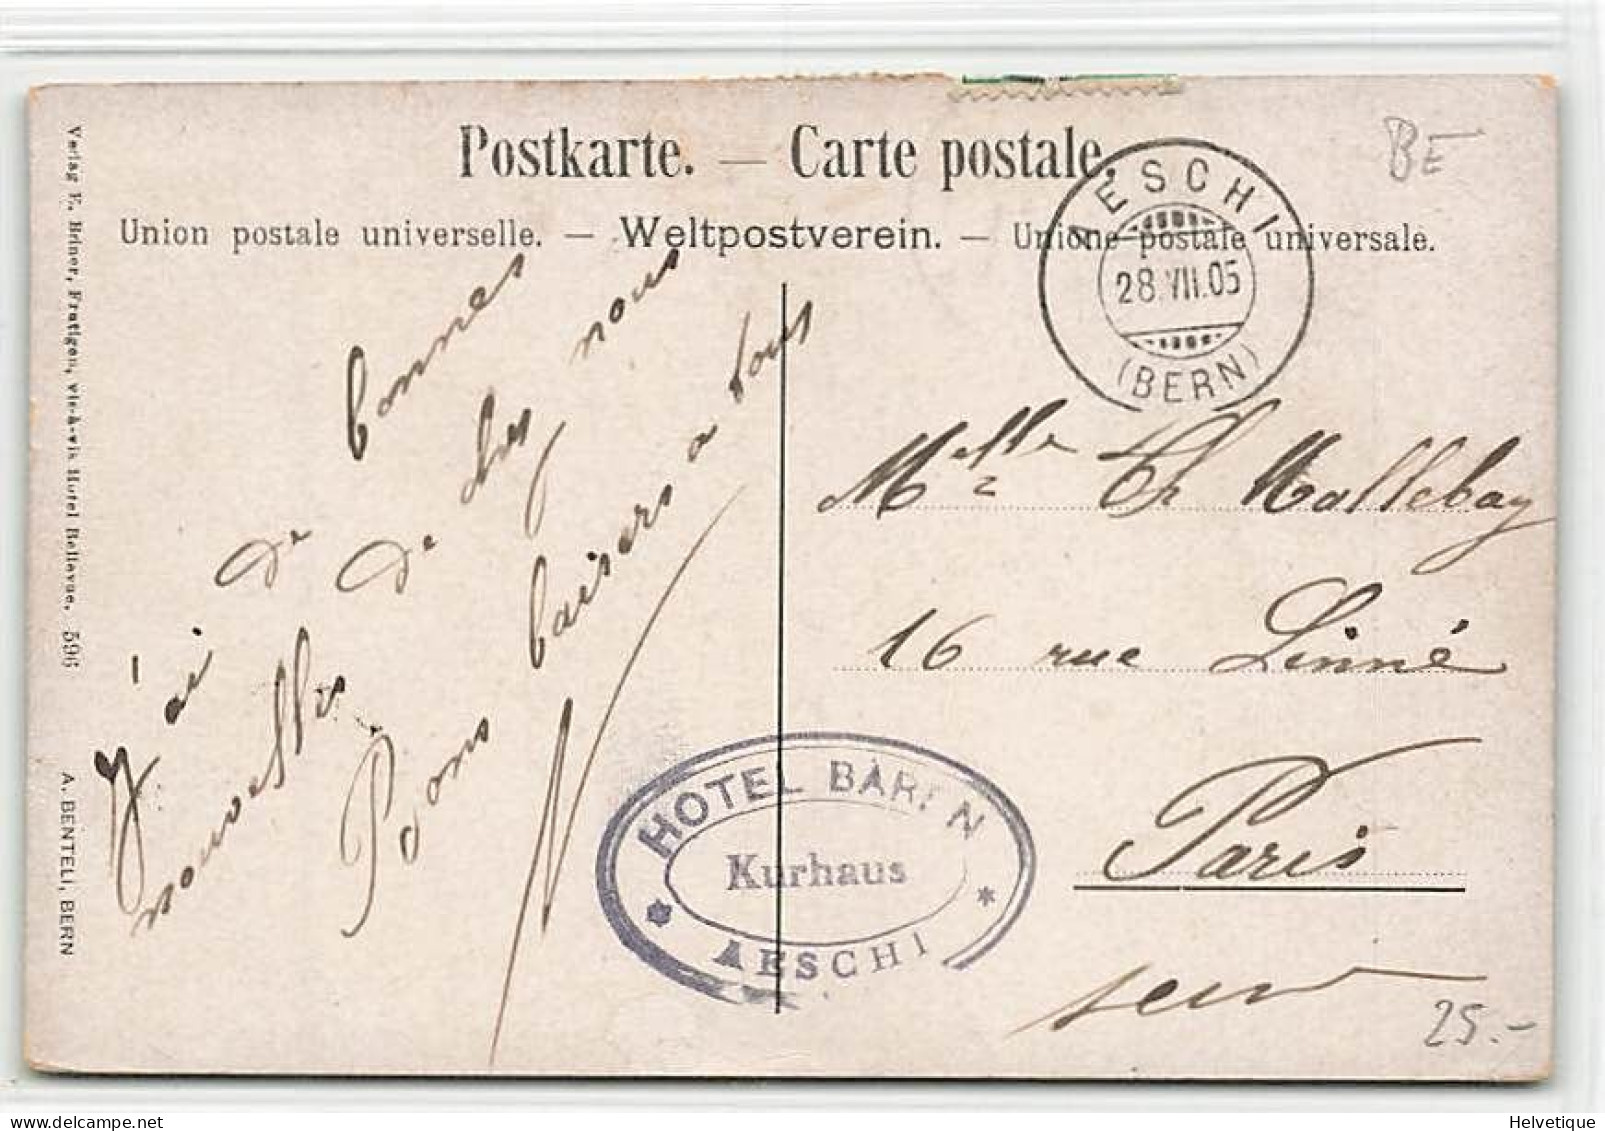 Postkarte. — Carte postale.
Union postale universelle. — Weltpostverein. — Unione postale universale.
AESCHI
28 VII.05
(BERN)
BE
J'ai de bonnes
nouvelles de chez nous
Bons baisers a tous
Melle Ch Mallebay
16 rue Linné
Paris
HOTEL BÄREN
Kurhaus
AESCHI
25.-
Verlag E. Briner, Frutigen, vis-à-vis Hotel Bellevue. 596
A. BENTELI, BERN
Helvetique